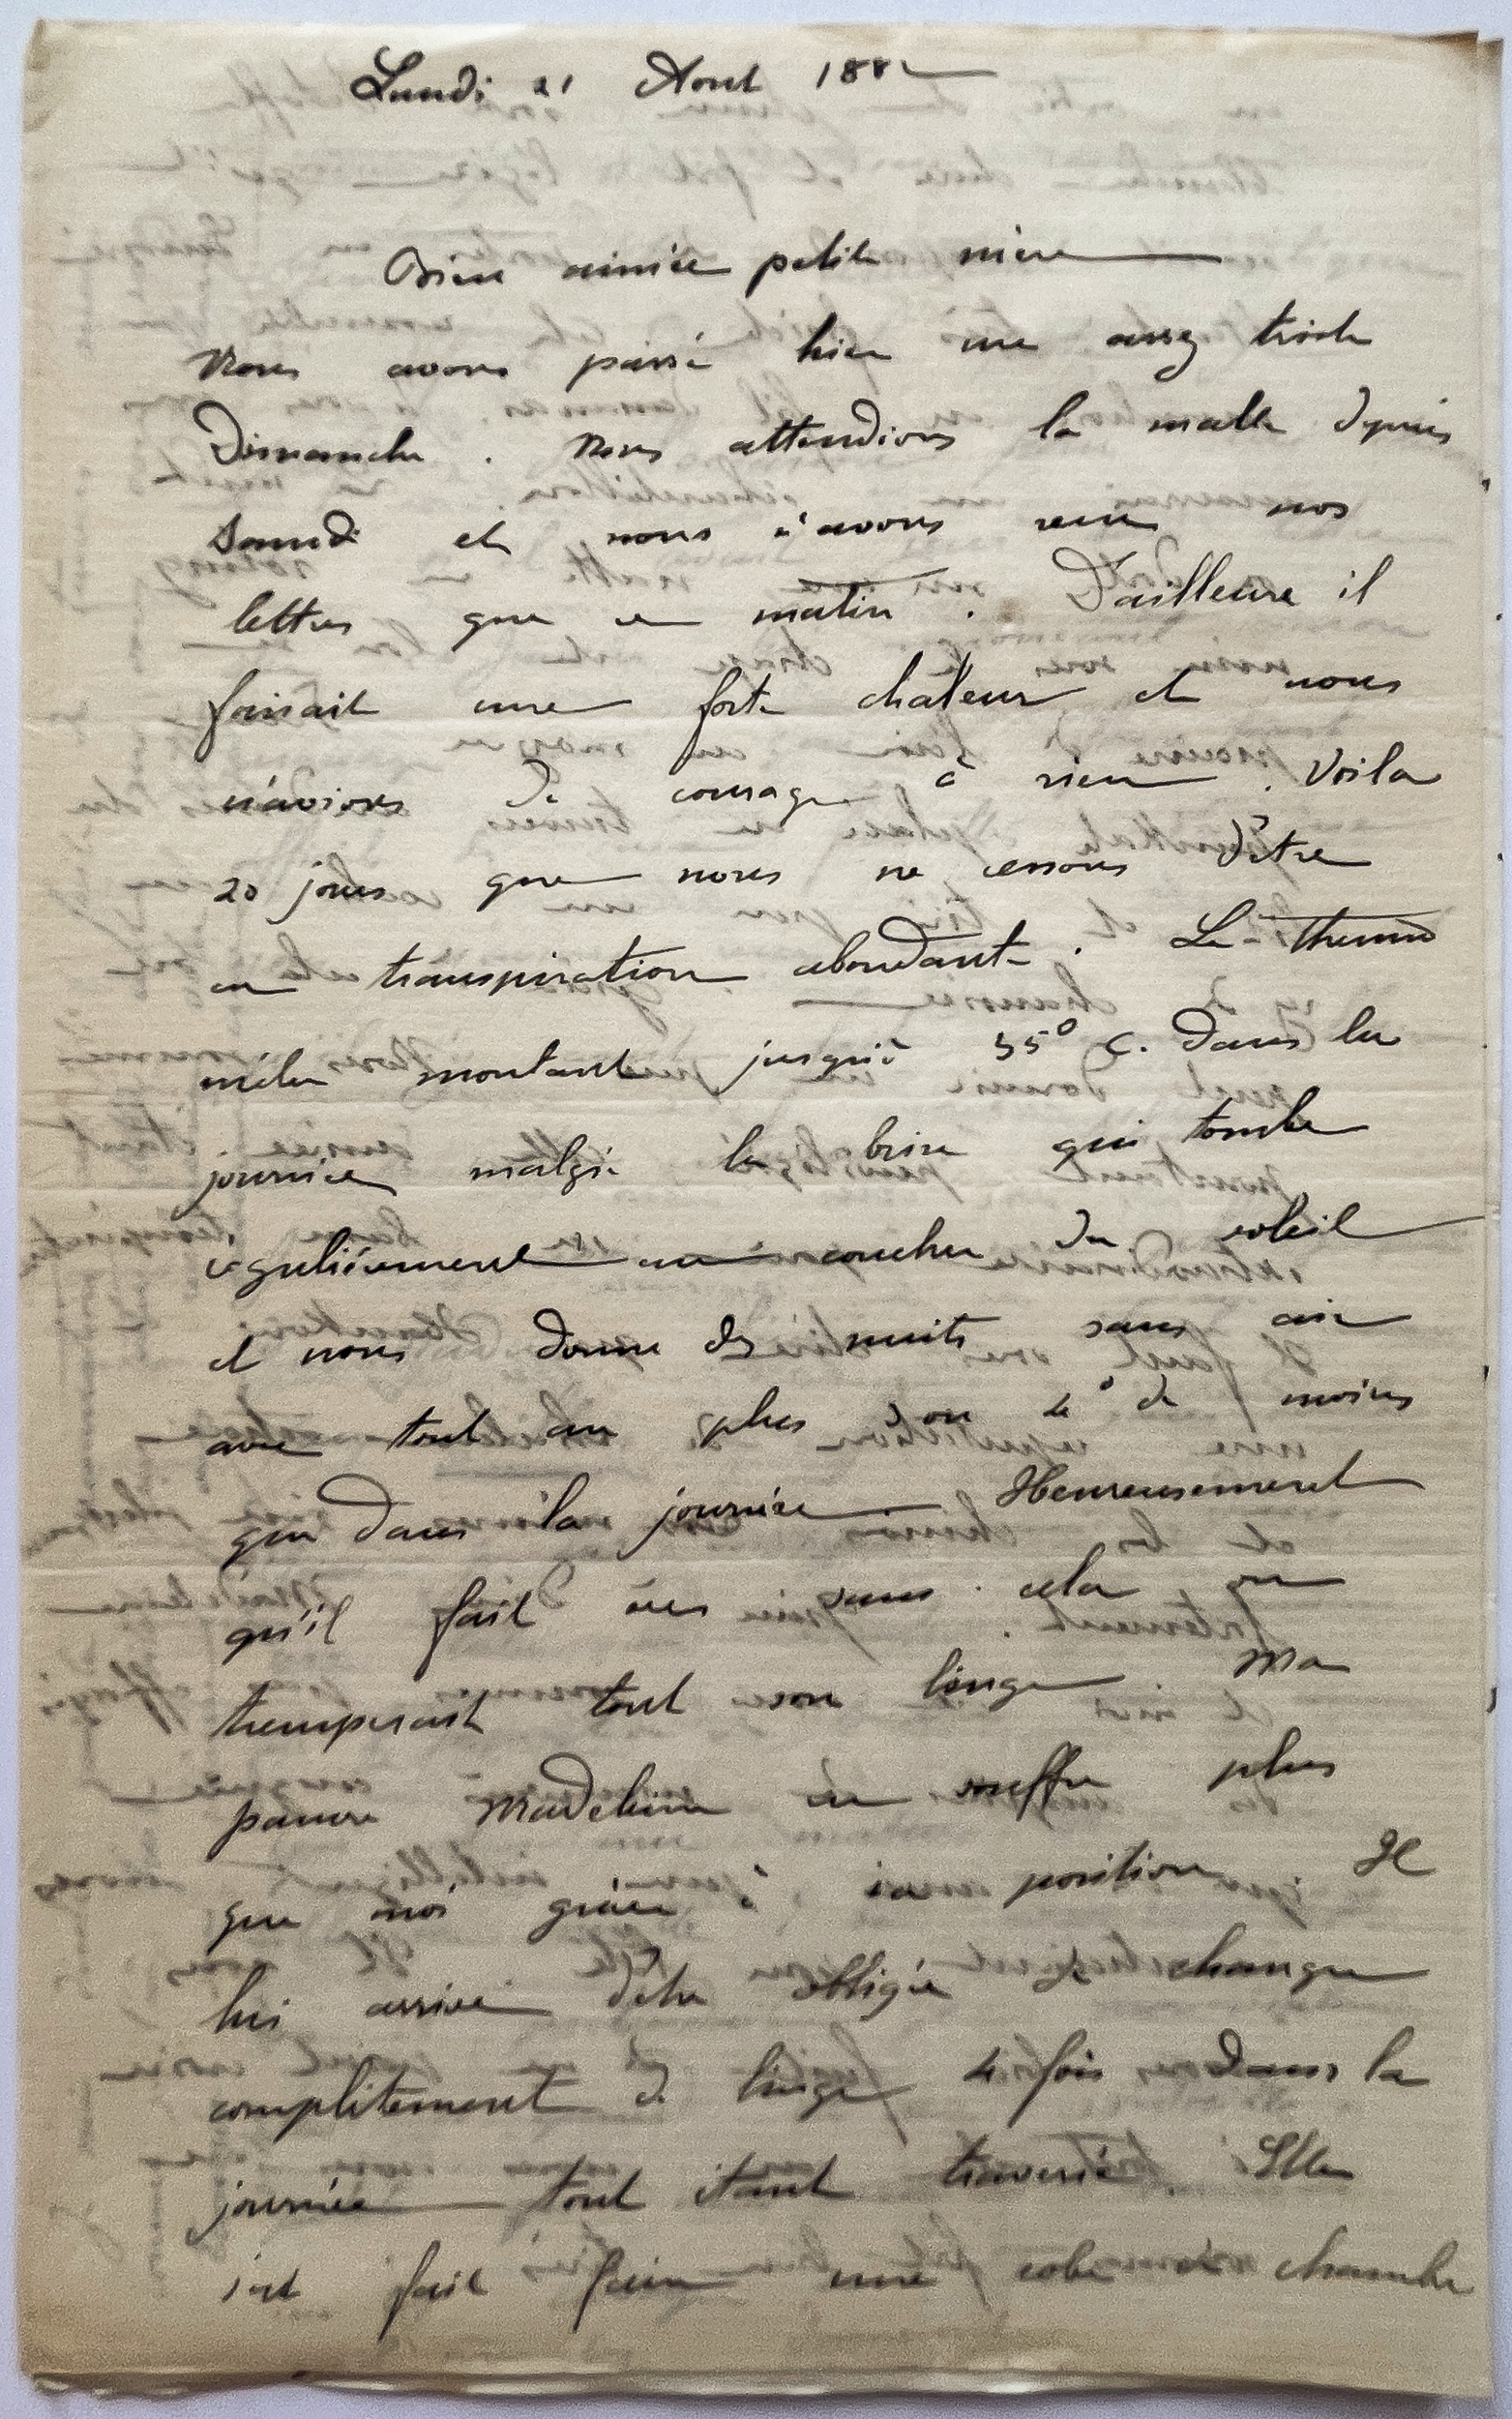 Lundi 21 Aout 1882
Bien aimée petite mère
Nous avons passé hier une assez triste
Dimanche. Nous attendions la malle depuis
Samedi et nous n'avons reçu nos
lettres que ce matin. D'ailleurs il
faisait une forte chaleur et nous
n'avions de courage à rien. Voila
20 jours que nous ne cessons d'être
en transpiration abondante. Le thermo
mètre montant jusqu'à 35° c. dans la
journée malgré la brise qui tombe
régulièrement au coucher du soleil
et nous donne des nuits sans air
avec tout au plus 3 ou 4° de moins
que dans la journée. Heureusement
qu'il fait sec sans cela on
tremperait tout son linge. Ma
pauvre Madeleine en souffre plus
que moi grâce à sa position. Il
lui arrive d'être obligée de changer
complètement de linge 4 fois dans la
journée tout étant traversé. Elle
s'est fait faire une robe de chambre